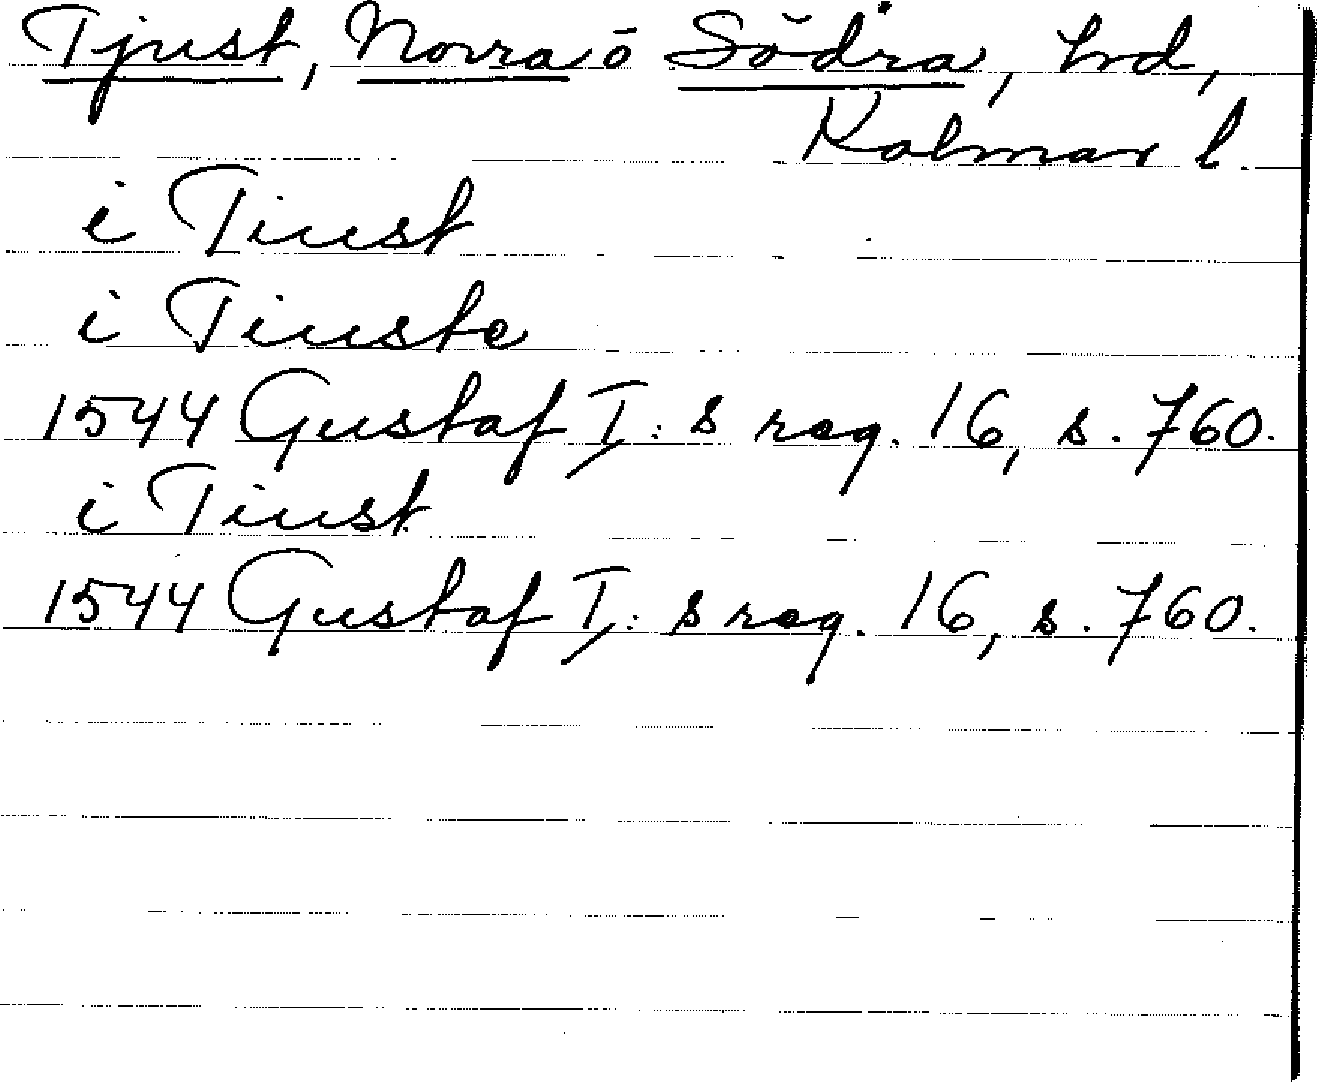 Tjust, Norra o Södra, hrd,
Kalmar l.
i Tiust
i Tiuste
1544 Gustaf I: s reg. 16, s. 760.
i Tiust
1544 Gustaf I: s reg. 16, s. 760.